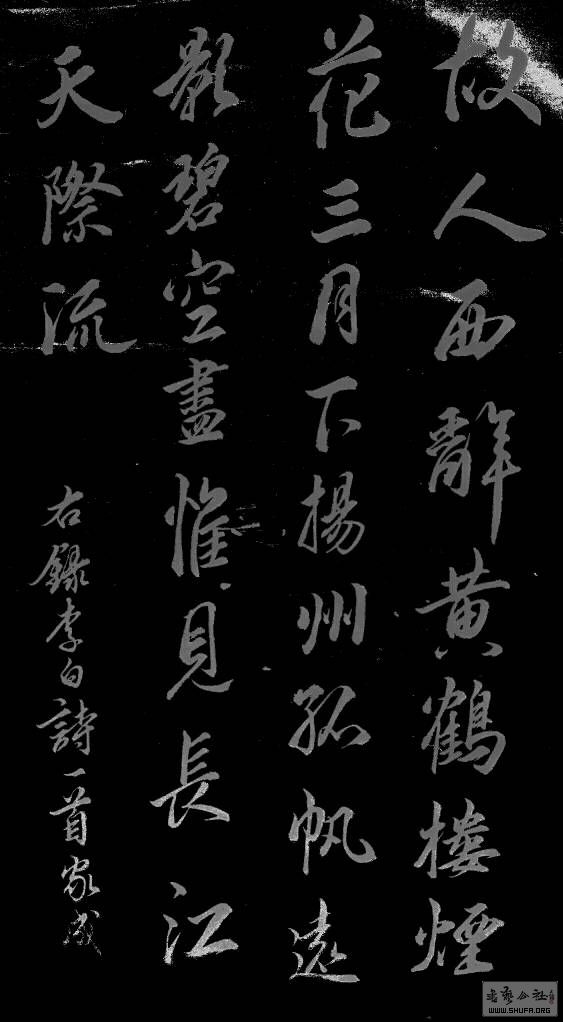 故人西辭黄鶴樓煙
花三月下揚州孤帆遠
影碧空盡惟見長江
天際流
右錄李白詩一首家成
書藝公社
WWW.SHUFA.ORG